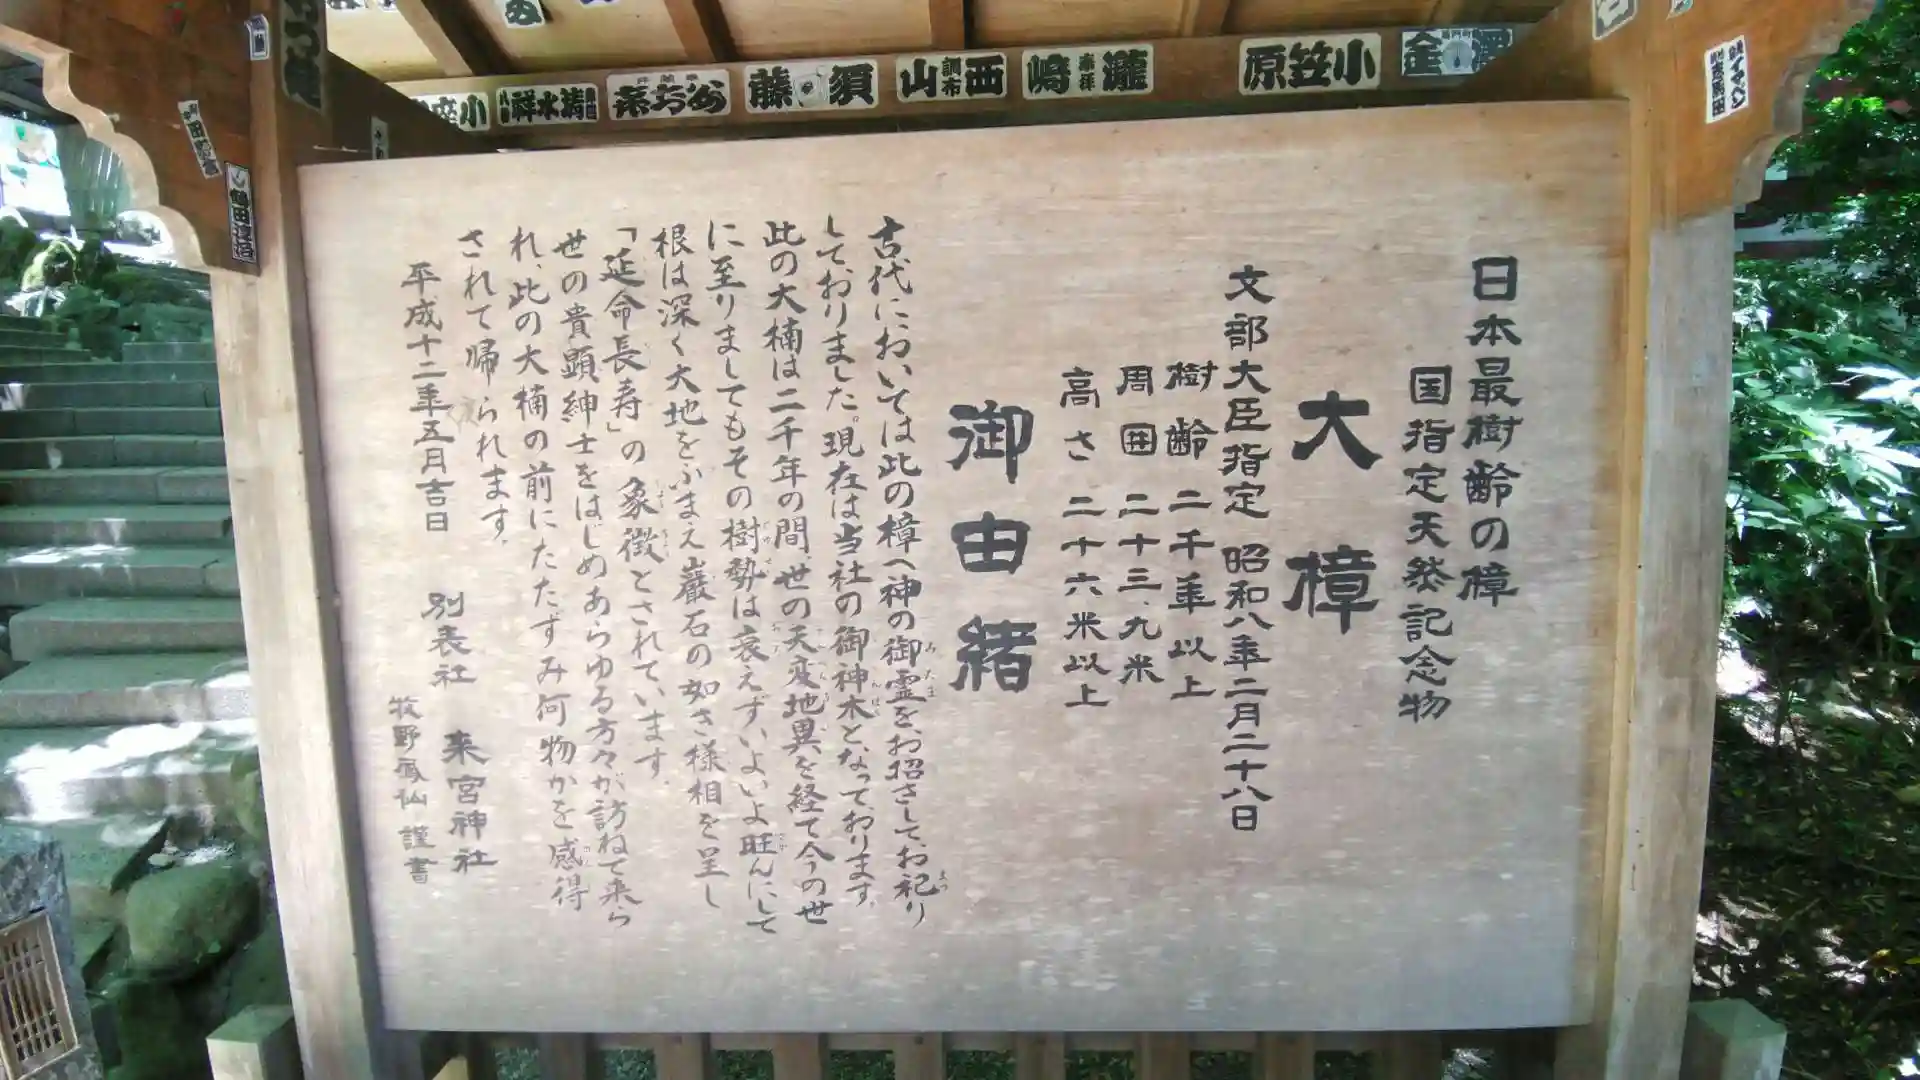 日本最樹齢の樟
国指定天然記念物
大樟
文部大臣指定 昭和八年二月二十八日
樹齢 二千年以上
周囲 二十三、九米
高さ 二十六米以上
御由緒
古代においては此の樟へ神の御霊を、お招きして、お祀り
しておりました。現在は当社の御神木と、なって、おります。
此の大楠は二千年の間、世の天変地異を経て今の世
に至りましてもその樹勢は衰えず、いよいよ旺んにして
根は深く大地をふまえ巖石の如き様相を呈し
「延命長寿」の象徴とされています。
世の貴顕紳士をはじめあらゆる方々が訪ねて来ら
れ、此の大楠の前にたたずみ何物かを感得
されて帰られます。
平成十二年五月吉日
別表社 来宮神社
牧野風仙 謹書
小笠原
瀧嶋
西山
調布
須藤
清水祥